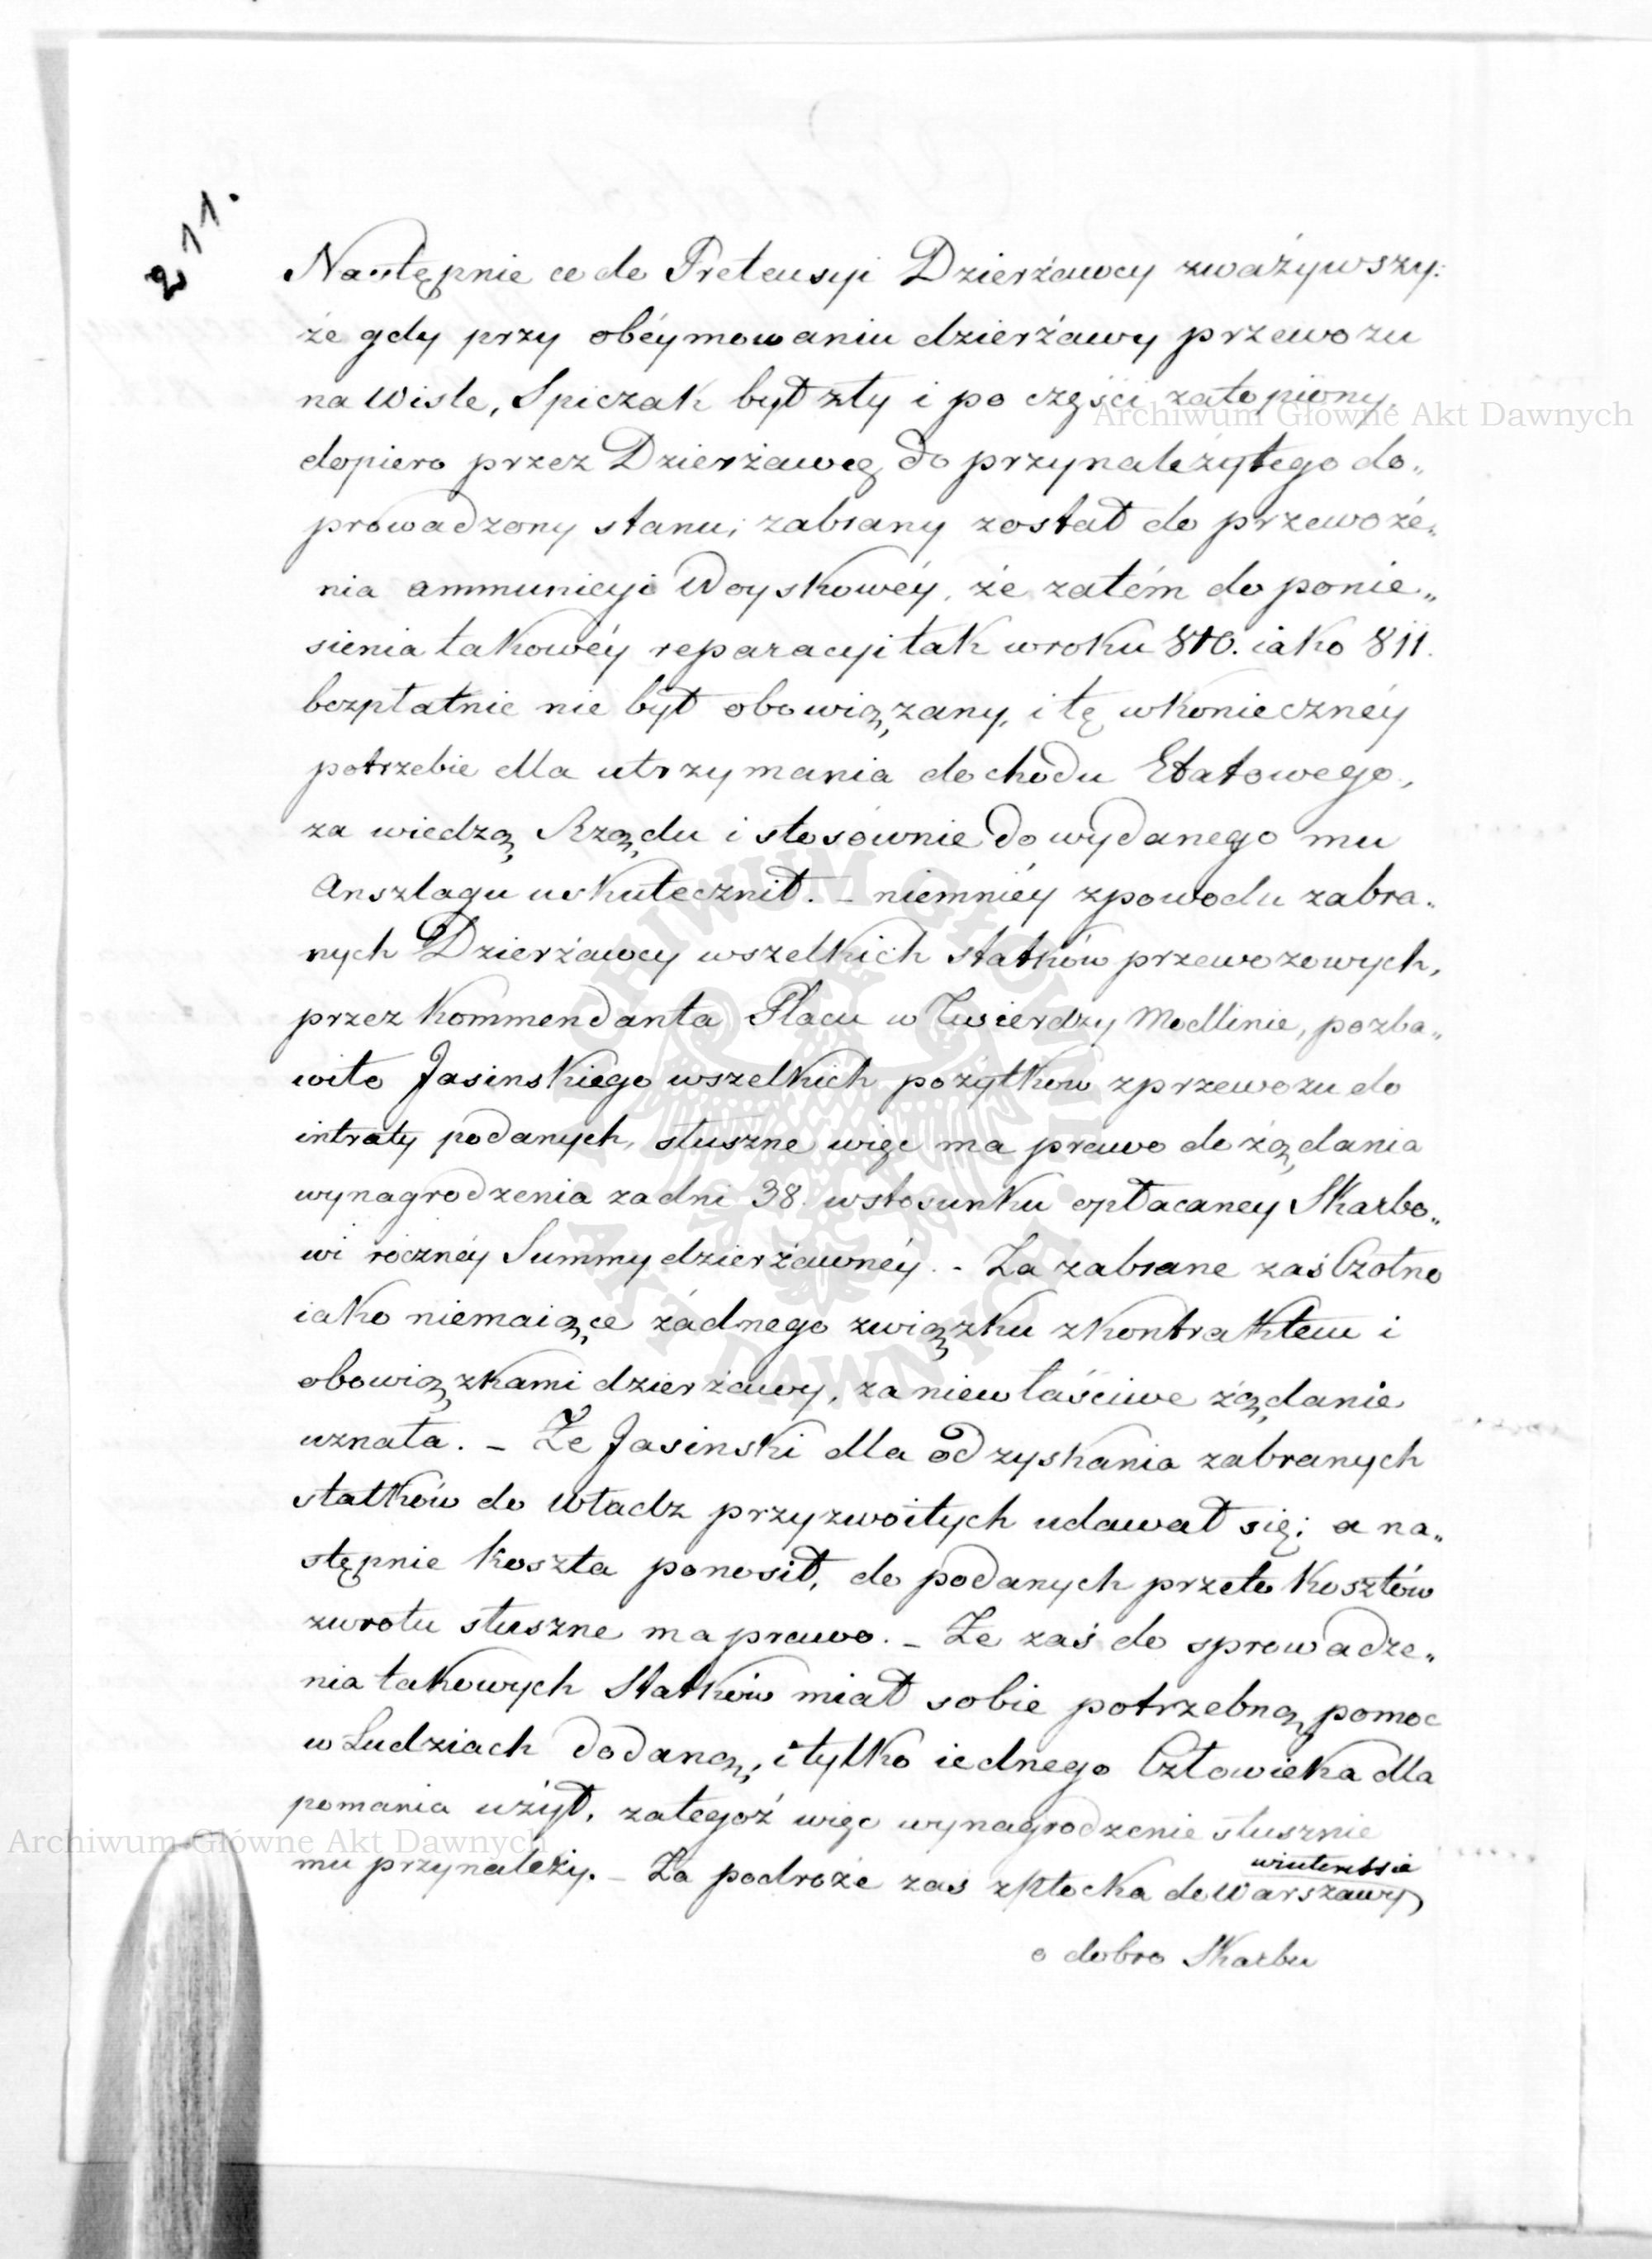 211.
Następnie co do Pretensyi Dzierżawcy zważywszy:
że gdy przy obéymowaniu dzierżawy przewozu
na Wisle, Spiczak był zły i po części zatopiony,
Archiwum Główne Akt Dawnych
dopiero przez Dzierżawcę do przynależytego do„
prowadzony stanu; zabrany został do przewoże„
nia ammunicyi Woyskowéy, że zatém do ponie„
sienia takowéy reparacyi tak w roku 810. iako 811.
bezpłatnie nie był obowiązany, i tę w konieczney
potrzebie dla utrzymania dochodu Etatowego,
za wiedzą Rządu i stosównie do wydanego mu
Anszlagu uskutecznił. – niemniéy z powodu zabra„
nych Dzierżawcy wszelkich statków przewozowych,
przez Kommendanta Placu w Twierdzy Modlinie, pozba„
wiło Jasinskiego wszelkich pożytków z przewozu do
intraty podanych, słuszne więc ma prawo do żądania
wynagrodzenia za dni 38. w stosunku opłacaney Skarbo„
wi rocznéy Summy dzierżawnéy. – Za zabrane zaś Czołno
iako niemaiące żadnego związku z kontraktem i
obowiązkami dzierżawy, za niewłaściwe żądanie
uznała. – Że Jasinski dla odzyskania zabranych
statków do Władz przyzwoitych udawał się; a na„
stępnie koszta ponosił, do podanych przeto kosztów
zwrotu słuszne ma prawo. – Ze zaś do sprowadze„
nia takowych Statków miał sobie potrzebną pomoc
w Ludziach dodaną; i tylko iednego Człowieka dla
pomania użył, zategoż więc wynagrodzenie słusznie
Archiwum Główne Akt Dawnych
w interessie
mu przynależy. – Za podroże zas z Płocka do Warszawy
o dobro Skarbu
ARCHIWUM GŁÓWNE AKT DAWNYCH